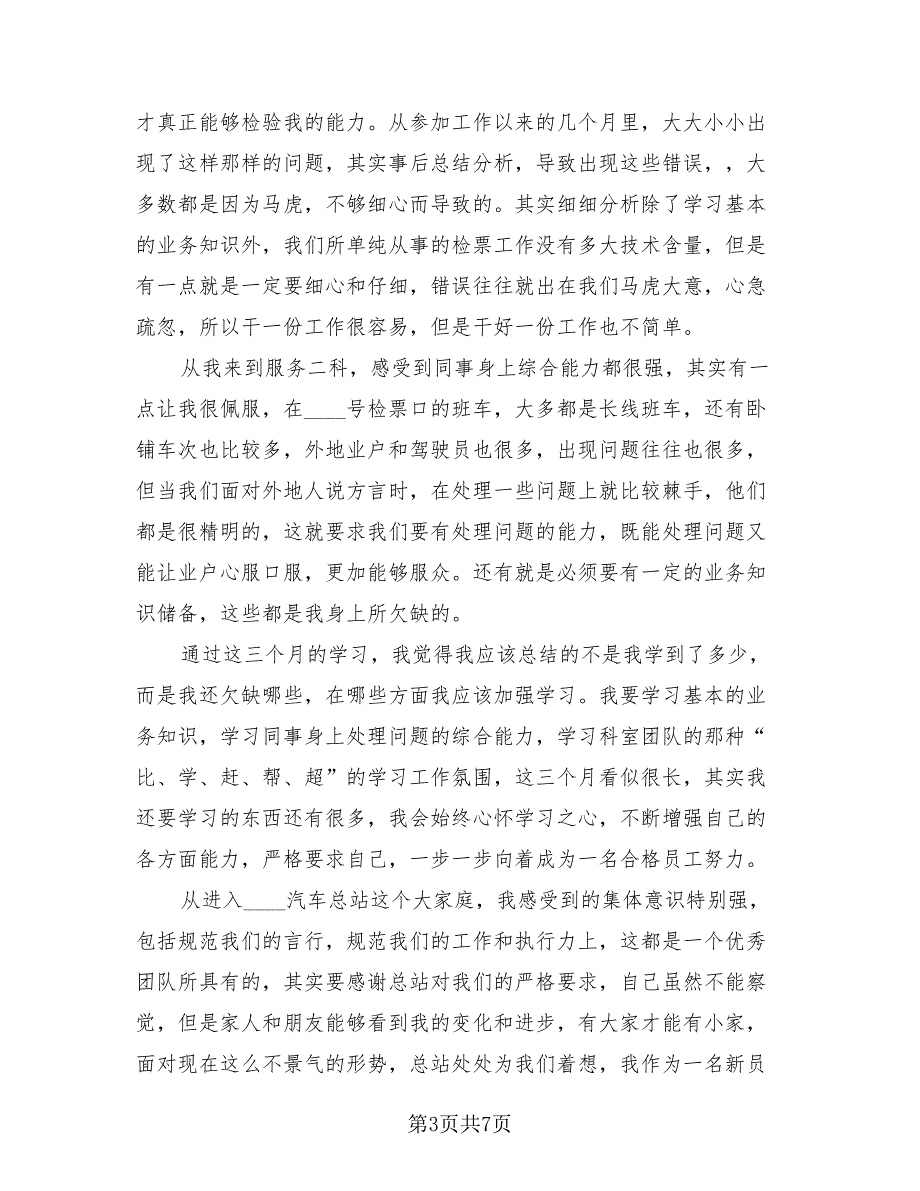 才真正能够检验我的能力。从参加工作以来的几个月里，大大小小出
现了这样那样的问题，其实事后总结分析，导致出现这些错误，，大
多数都是因为马虎，不够细心而导致的。其实细细分析除了学习基本
的业务知识外，我们所单纯从事的检票工作没有多大技术含量，但是
有一点就是一定要细心和仔细，错误往往就出在我们马虎大意，心急
疏忽，所以干一份工作很容易，但是干好一份工作也不简单。
从我来到服务二科，感受到同事身上综合能力都很强，其实有一
点让我很佩服，在____号检票口的班车，大多都是长线班车，还有卧
铺车次也比较多，外地业户和驾驶员也很多，出现问题往往也很多，
但当我们面对外地人说方言时，在处理一些问题上就比较棘手，他们
都是很精明的，这就要求我们要有处理问题的能力，既能处理问题又
能让业户心服口服，更加能够服众。还有就是必须要有一定的业务知
识储备，这些都是我身上所欠缺的。
通过这三个月的学习，我觉得我应该总结的不是我学到了多少，
而是我还欠缺哪些，在哪些方面我应该加强学习。我要学习基本的业
务知识，学习同事身上处理问题的综合能力，学习科室团队的那种“
比、学、赶、帮、超”的学习工作氛围，这三个月看似很长，其实我
还要学习的东西还有很多，我会始终心怀学习之心，不断增强自己的
各方面能力，严格要求自己，一步一步向着成为一名合格员工努力。
从进入____汽车总站这个大家庭，我感受到的集体意识特别强，
包括规范我们的言行，规范我们的工作和执行力上，这都是一个优秀
团队所具有的，其实要感谢总站对我们的严格要求，自己虽然不能察
觉，但是家人和朋友能够看到我的变化和进步，有大家才能有小家，
面对现在这么不景气的形势，总站处处为我们着想，我作为一名新员
第3页共7页